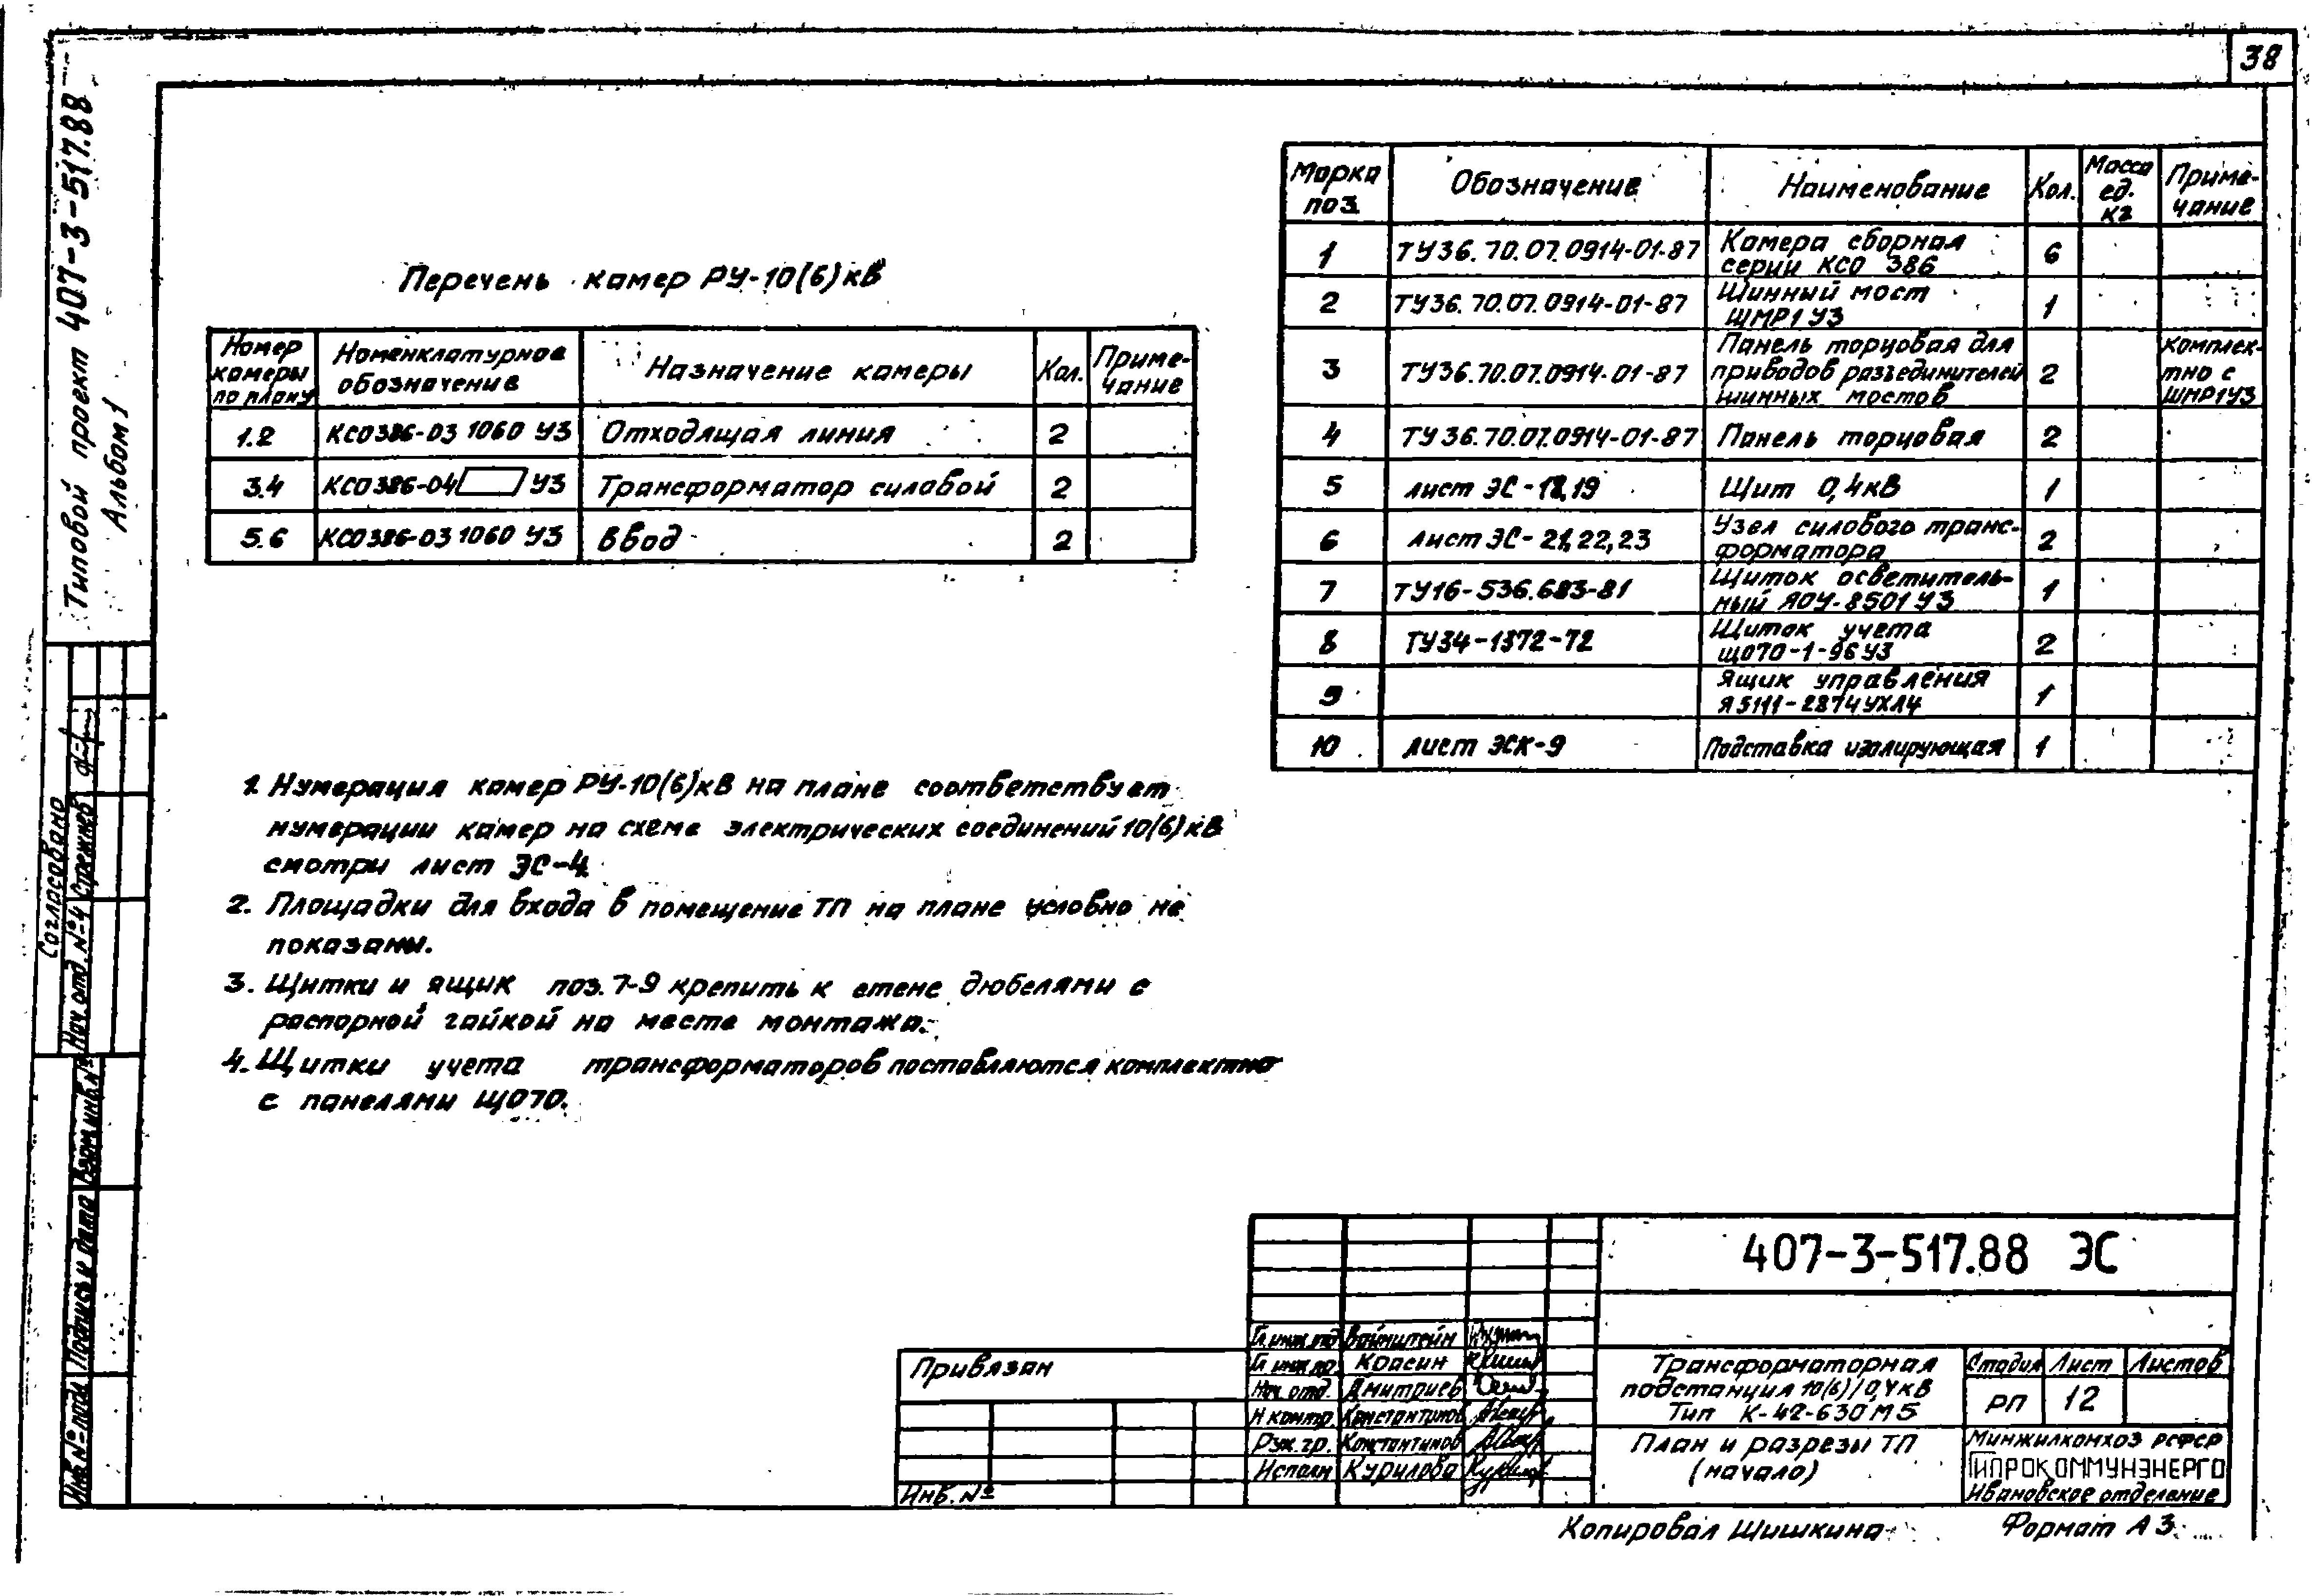 38
Типовой проект 407-3-517.88
Альбом 1
Перечень камер РУ-10(6)кВ
Номер камеры по плану
Номенклатурное обозначение
Назначение камеры
Кол.
Примечание
1.2 КСО386-03 1060 У3 Отходящая линия 2
3.4 КСО386-04 У3 Трансформатор силовой 2
5.6 КСО386-03 1060 У3 Ввод 2
Марка поз.
Обозначение
Наименование
Кол.
Масса ед. кг
Приме-
чание
1 ТУ36.70.07.0914-01-87 Камера сборная
серии КСО 386 6
2 ТУ36.70.07.0914-01-87 Шинный мост
ШМР1У3 1
3 ТУ36.70.07.0914-01-87 Панель торцовая для
приводов разъединителей
шинных мостов 2
комплек-
тно с
ШМР1У3
4 ТУ36.70.07.0914-01-87 Панель торцовая 2
5 лист ЭС-18,19 Щит 0,4кВ 1
6 лист ЭС-21,22,23 Узел силового транс-
форматора 2
7 ТУ16-536.683-81 Щиток осветитель-
ный ЯОУ-8501У3 1
8 ТУ34-1372-72 Щиток учета
ЩО70-1-96У3 2
9 Ящик управления
Я5111-2874УХЛ4 1
10 лист ЭСК-9 Подставка изолирующая 1
1. Нумерация камер РУ-10(6)кВ на плане соответствует
нумерации камер на схеме электрических соединений 10(6)кВ
смотри лист ЭС-4
2. Площадки для входа в помещение ТП на плане условно не
показаны.
3. Щитки и ящик поз. 7-9 крепить к стене дюбелями с
распорной гайкой на месте монтажа.
4. Щитки учета трансформаторов поставляются комплектно
с панелями ЩО70.
Согласовано
Нач. отд. №4 Стрежнев
Взам.инв.№
Подпись и дата
Инв.№ подл
Привязан
Инв. №
407-3-517.88 ЭС
Гл.инж.отд Вайнштейн
Гл.инж.пр. Красин
Нач. отд. Дмитриев
Н.контр. Константинов
Рук. гр. Константинов
Исполн Курилова
Трансформаторная
подстанция 10(6)/0,4кВ
Тип К-42-630М5
Стадия Лист Листов
РП 12
План и разрезы ТП
(начало)
Минжилкомхоз РСФСР
ГИПРОКОММУНЭНЕРГО
Ивановское отделение
Копировал Шишкина
Формат А3